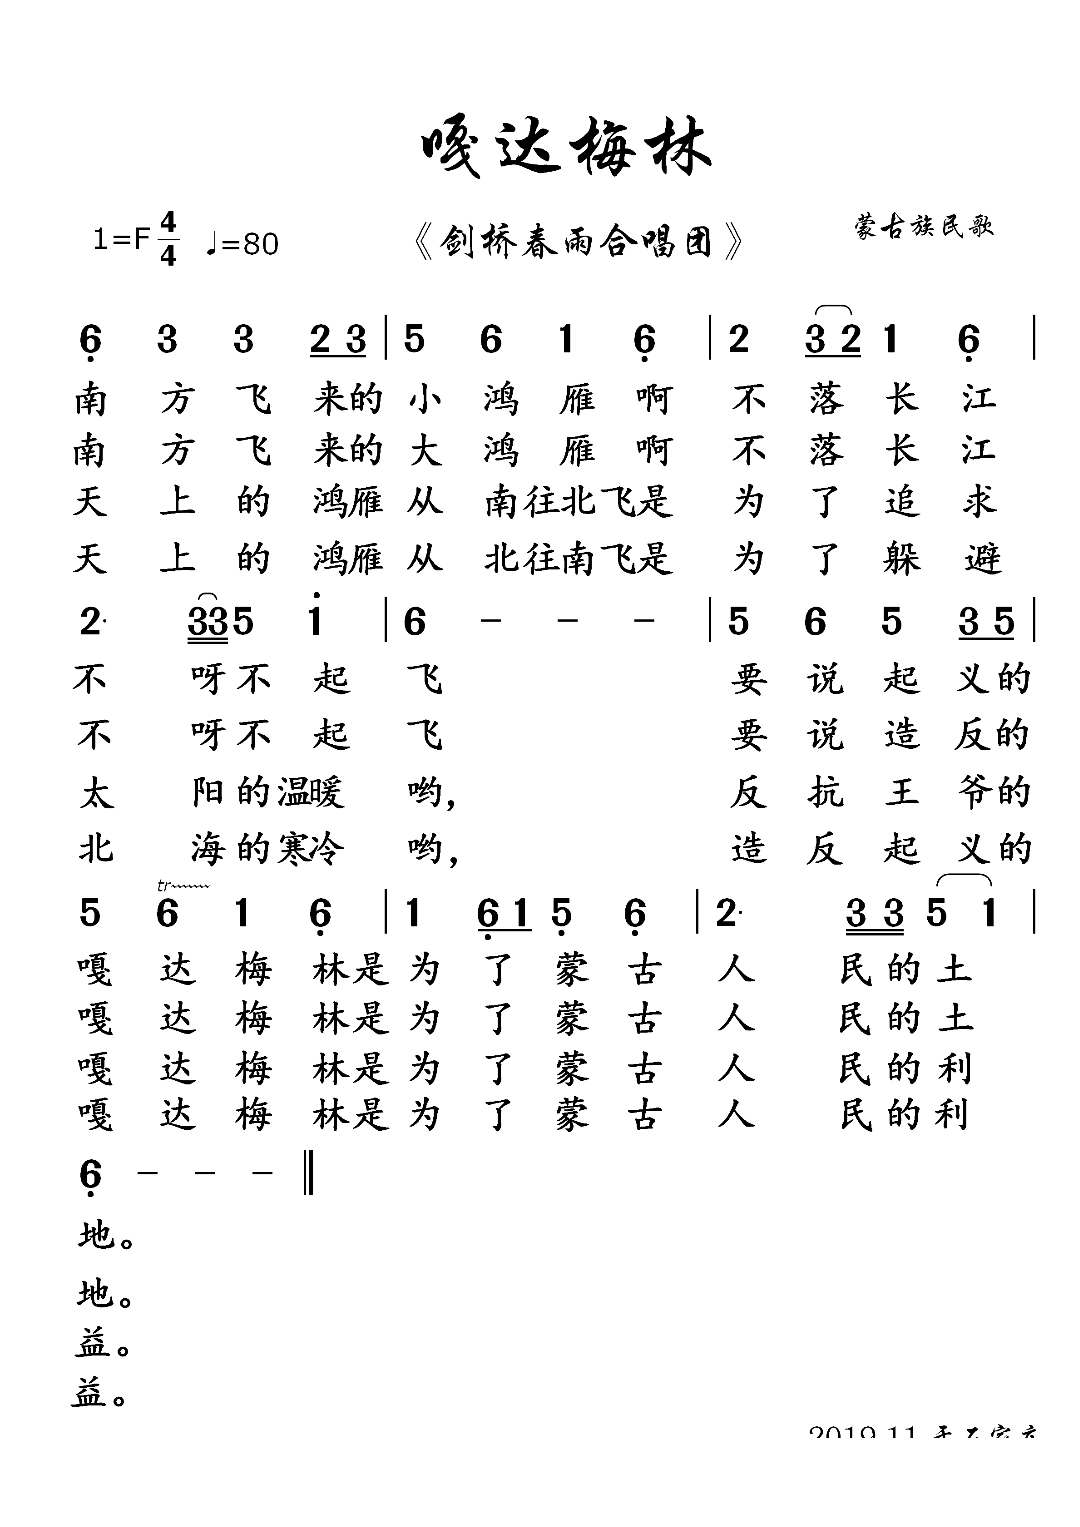 嘎达梅林
1=F 4/4 ♩=80 《剑桥春雨合唱团》 蒙古族民歌
6̣ 3 3 2 3 | 5 6 1 6̣ | 2 3 2 1 6̣ |
南方飞来的小鸿雁啊不落长江
南方飞来的大鸿雁啊不落长江
天上的鸿雁从南往北飞是为了追求
天上的鸿雁从北往南飞是为了躲避
2· 3 3 5 1̇ | 6 － － － | 5 6 5 3 5 |
不呀不起飞 要说起义的
不呀不起飞 要说造反的
太阳的温暖哟, 反抗王爷的
北海的寒冷哟, 造反起义的
tr
5 6 1 6̣ | 1 6̣ 1 5̣ 6̣ | 2· 3 3 5 1 |
嘎达梅林是为了蒙古人民的土
嘎达梅林是为了蒙古人民的土
嘎达梅林是为了蒙古人民的利
嘎达梅林是为了蒙古人民的利
6̣ － － － ‖
地。
地。
益。
益。
2019.11